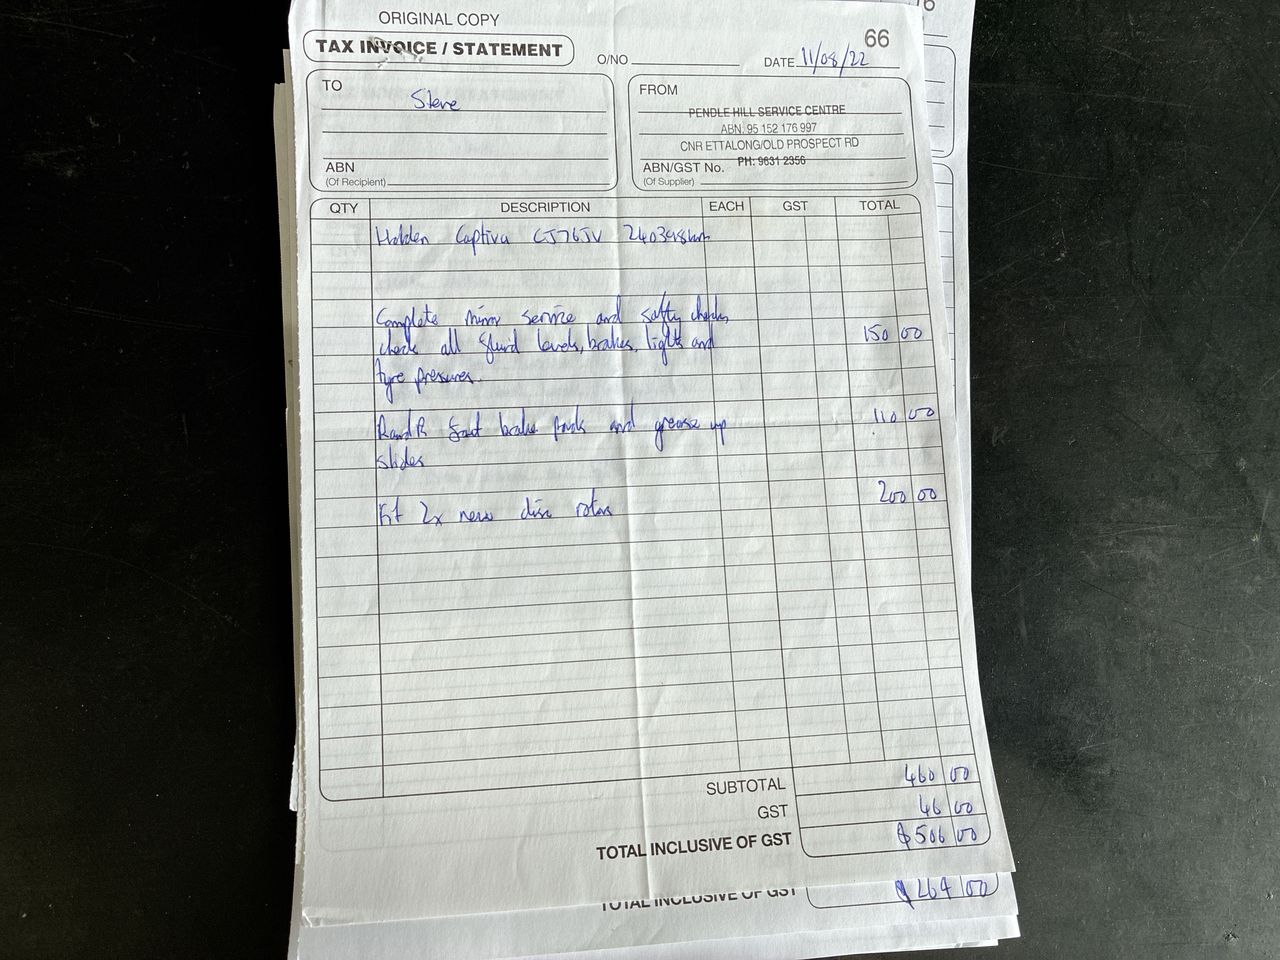 ORIGINAL COPY
66
TAX INVOICE / STATEMENT
O/NO
DATE 11/08/22
TO
Steve
ABN
(Of Recipient)
FROM
PENDLE HILL SERVICE CENTRE
ABN: 95 152 176 997
CNR ETTALONG/OLD PROSPECT RD
PH: 9631 2356
ABN/GST No.
(Of Supplier)
QTY DESCRIPTION EACH GST TOTAL
Holden Captiva CJ76JV 240398km
Complete minor service and safty checks,
check all fluid levels, brakes, lights and 150 00
tyre presures.
R and R front brake pads and grease up 110 00
slides
Fit 2x new disc rotors 200 00
SUBTOTAL 460 00
GST 46 00
TOTAL INCLUSIVE OF GST $506 00
TOTAL INCLUSIVE OF GST $264 00